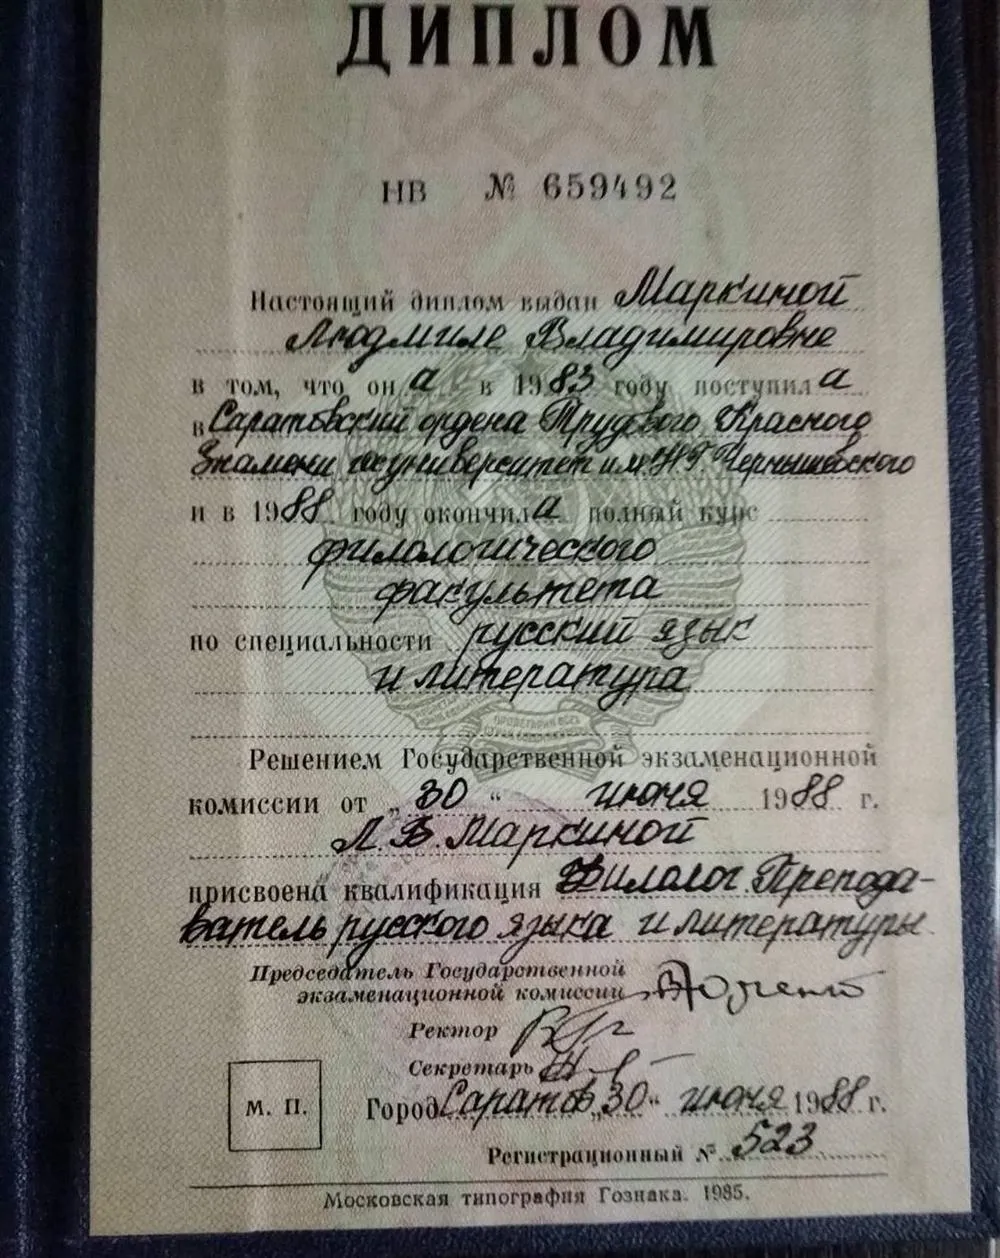 ДИПЛОМ
НВ № 659492
Настоящий диплом выдан Маркиной
Людмиле Владимировне
в том, что он а в 1983 году поступил а
в Саратовский ордена Трудового Красного
Знамени госуниверситет им. Н.Г. Чернышевского
и в 1988 году окончил а полный курс
филологического
факультета
по специальности русский язык
и литература
ПРОЛЕТАРИИ ВСЕХ
Решением Государственной экзаменационной
комиссии от „30“ июня 1988 г.
Л. В. Маркиной
присвоена квалификация Филолог. Препода-
ватель русского языка и литературы.
Председатель Государственной
экзаменационной комиссии
Ректор
Секретарь
Город Саратов „30“ июня 1988 г.
М. П.
Регистрационный № 523
Московская типография Гознака. 1985.